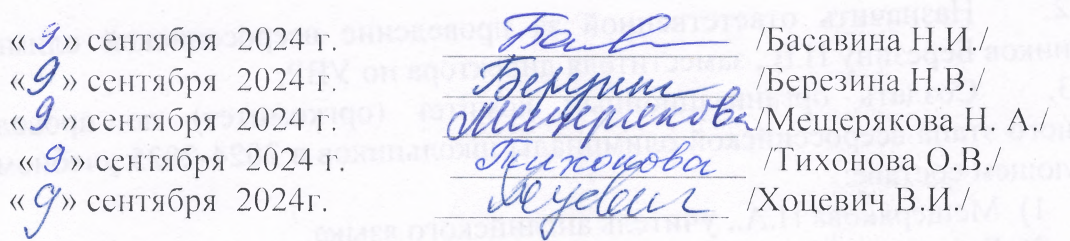 «9» сентября 2024 г. Бас /Басавина Н.И./
«9» сентября 2024 г. Березин /Березина Н.В./
«9» сентября 2024 г. Мещерякова /Мещерякова Н. А./
«9» сентября 2024 г. Тихонова /Тихонова О.В./
«9» сентября 2024г. /Хоцевич В.И./